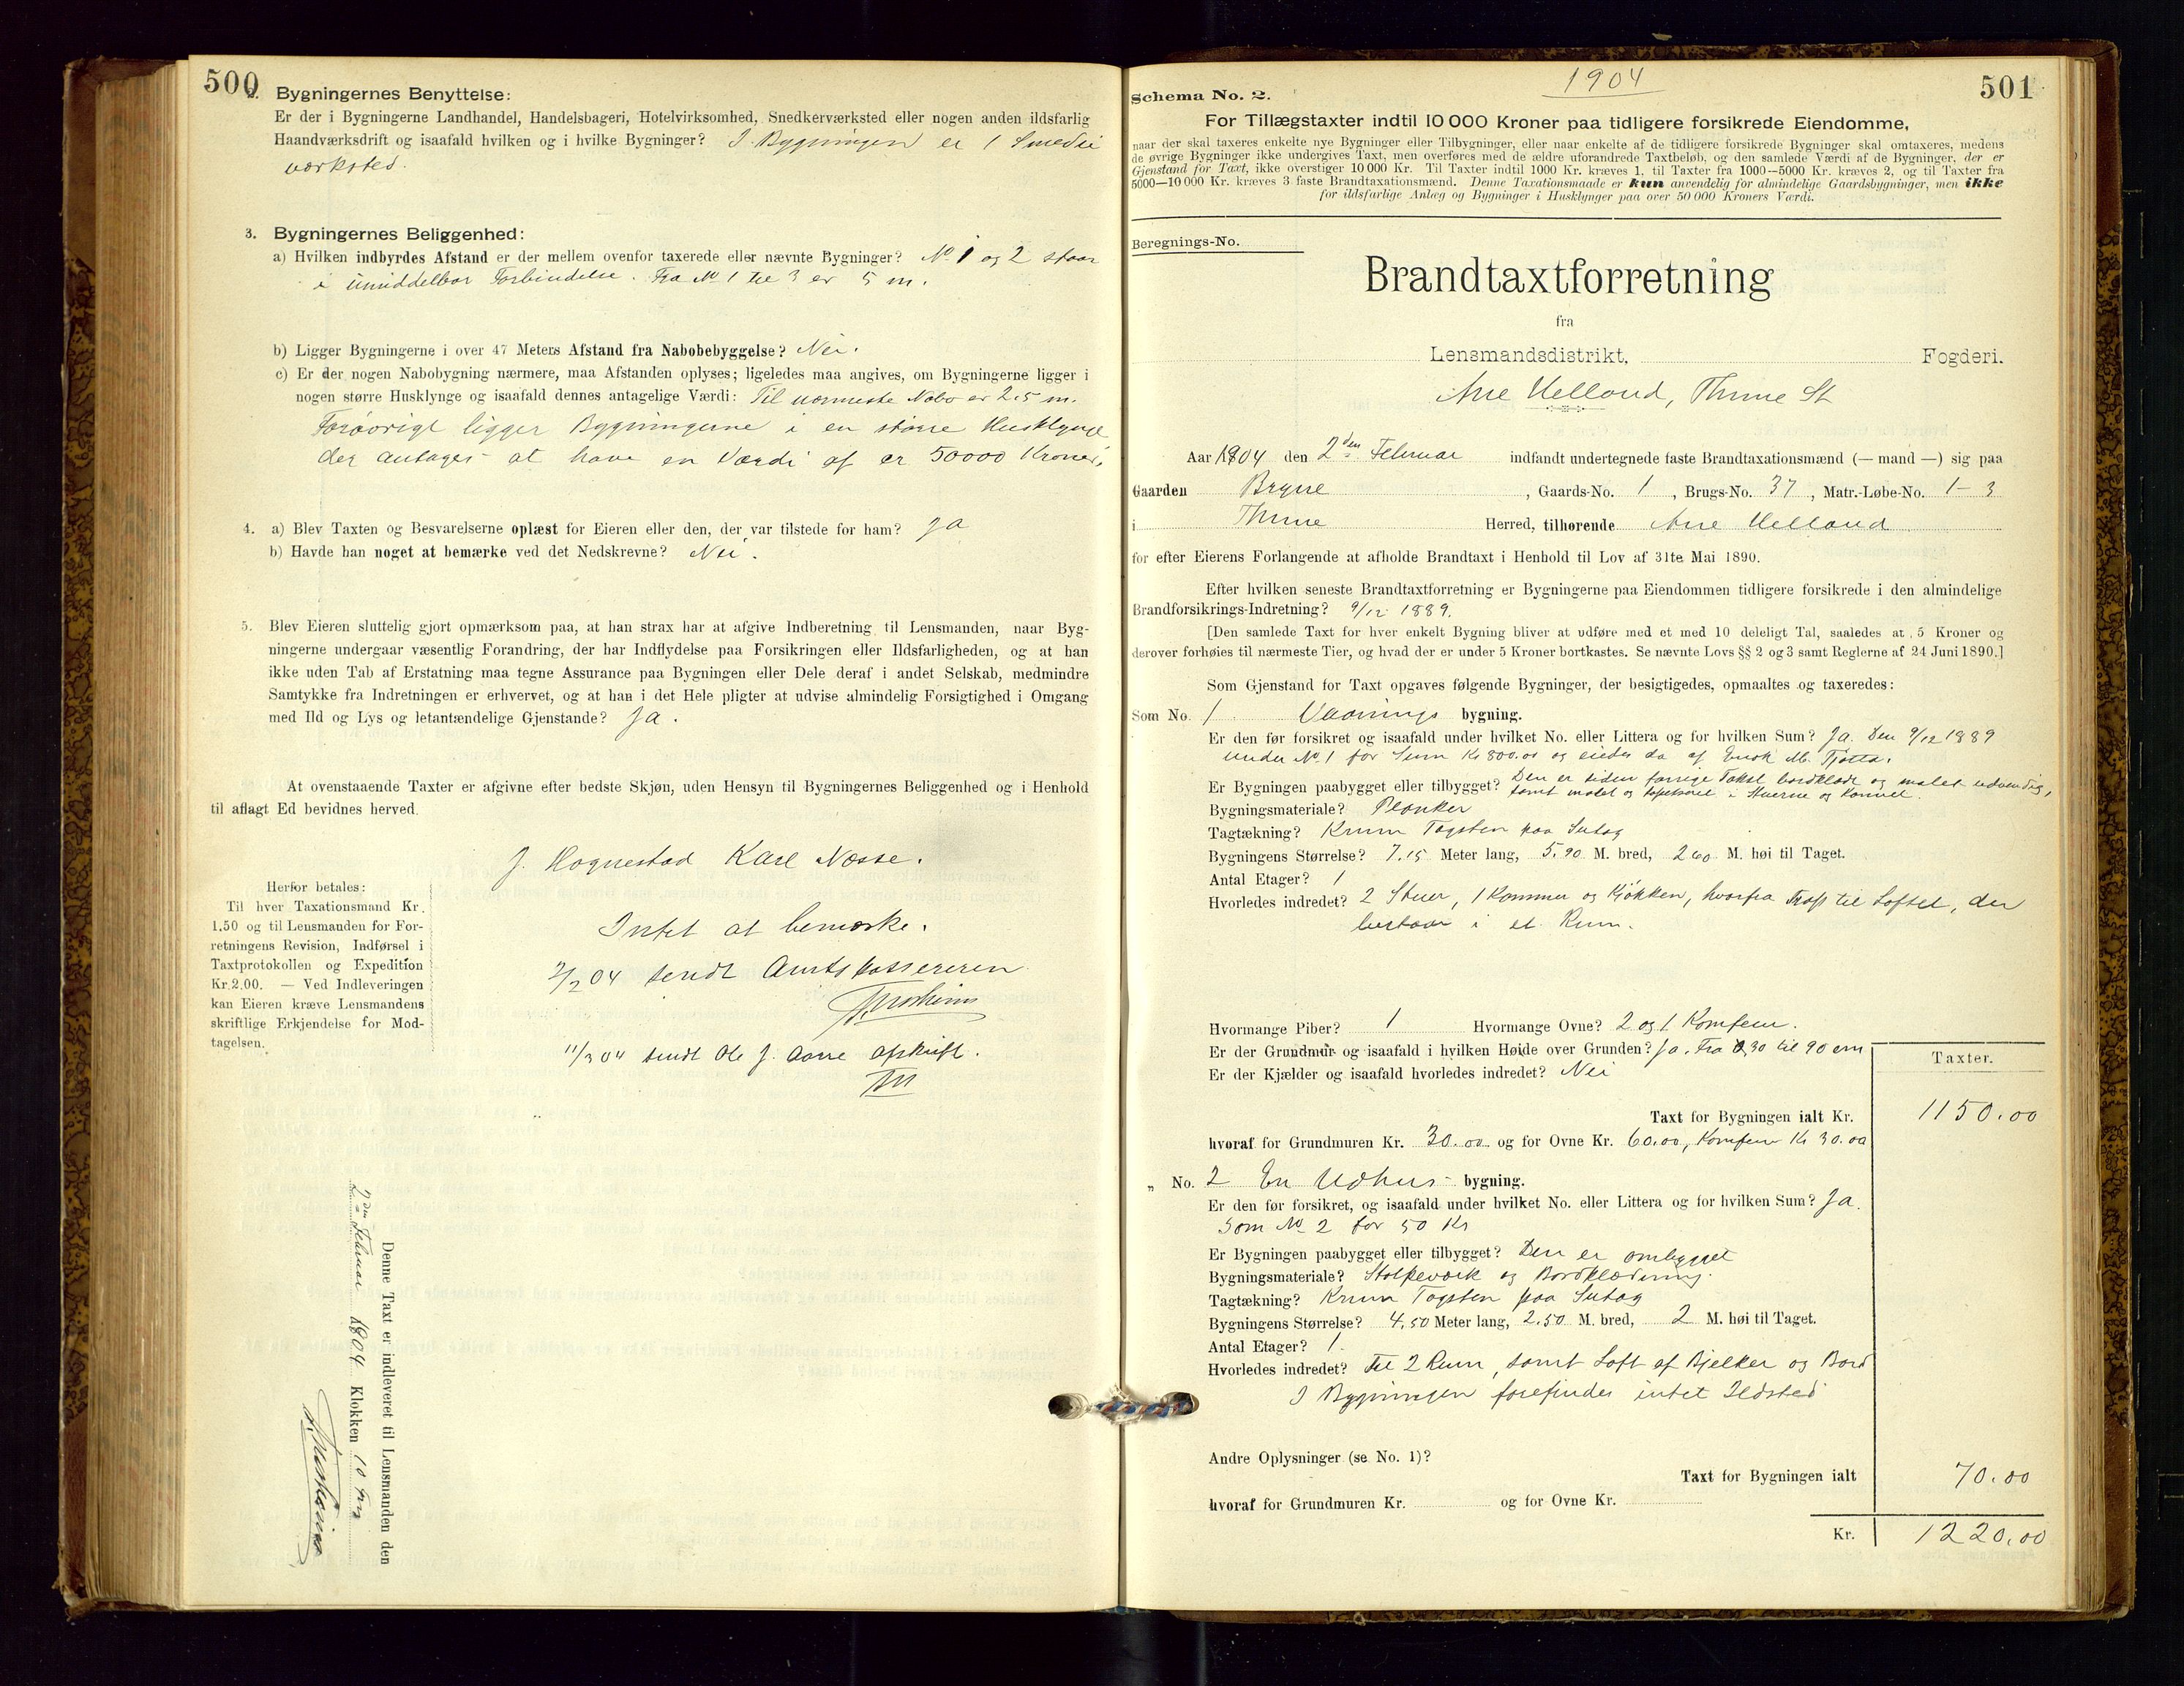 500
2. Bygningernes Benyttelse:
Er der i Bygningerne Landhandel, Handelsbageri, Hotelvirksomhed, Snedkerværksted eller nogen anden ildsfarlig
Haandværksdrift og isaafald hvilken og i hvilke Bygninger? I Bygningen er 1 Smedie
værksted.
3. Bygningernes Beliggenhed:
a) Hvilken indbyrdes Afstand er der mellem ovenfor taxerede eller nævnte Bygninger? No. 1 og 2 staar
i umiddelbar Forbindelse. Fra No 1 til 3 er 5 m.
b) Ligger Bygningerne i over 47 Meters Afstand fra Nabobebyggelse? Nei.
c) Er der nogen Nabobygning nærmere, maa Afstanden oplyses; ligeledes maa angives, om Bygningerne ligger i
nogen større Husklynge og isaafald dennes antagelige Værdi: Til nærmeste Nabo er 2.5 m.
Forøvrigt ligger Bygningerne i en større Husklynge
der antages at have en Værdi af cr 50000 Kroner.
4. a) Blev Taxten og Besvarelserne oplæst for Eieren eller den, der var tilstede for ham? Ja
b) Havde han noget at bemærke ved det Nedskrevne? Nei.
5. Blev Eieren sluttelig gjort opmærksom paa, at han strax har at afgive Indberetning til Lensmanden, naar Byg-
ningerne undergaar væsentlig Forandring, der har Indflydelse paa Forsikringen eller Ildsfarligheden, og at han
ikke uden Tab af Erstatning maa tegne Assurance paa Bygningen eller Dele deraf i andet Selskab, medmindre
Samtykke fra Indretningen er erhvervet, og at han i det Hele pligter at udvise almindelig Forsigtighed i Omgang
med Ild og Lys og letantændelige Gjenstande? Ja.
At ovenstaaende Taxter er afgivne efter bedste Skjøn, uden Hensyn til Bygningernes Beliggenhed og i Henhold
til aflagt Ed bevidnes herved.
J. Hognestad Karl Næsse.
Herfor betales:
Til hver Taxationsmand Kr.
1.50 og til Lensmanden for For-
retningens Revision, Indførsel i
Taxtprotokollen og Expedition
Kr. 2.00. — Ved Indleveringen
kan Eieren kræve Lensmandens
skriftlige Erkjendelse for Mod-
tagelsen.
Intet at bemærke.
2/2 04 sendt Amtskassereren
11/3 04 sendt Ole J. Aarre afskrift.
Denne Taxt er indleveret til Lensmanden den
2den Februar 1904 Klokken 10 fm
501
1904
Schema No. 2.
For Tillægstaxter indtil 10 000 Kroner paa tidligere forsikrede Eiendomme,
naar der skal taxeres enkelte nye Bygninger eller Tilbygninger, eller naar enkelte af de tidligere forsikrede Bygninger skal omtaxeres, medens
de øvrige Bygninger ikke undergives Taxt, men overføres med de ældre uforandrede Taxtbeløb, og den samlede Værdi af de Bygninger, der er
Gjenstand for Taxt, ikke overstiger 10 000 Kr. Til Taxter indtil 1000 Kr. kræves 1, til Taxter fra 1000—5000 Kr. kræves 2, og til Taxter fra
5000—10 000 Kr. kræves 3 faste Brandtaxationsmænd. Denne Taxationsmaade er kun anvendelig for almindelige Gaardsbygninger, men ikke
for ildsfarlige Anlæg og Bygninger i Husklynger paa over 50 000 Kroners Værdi.
Beregnings-No.
Brandtaxtforretning
fra
Lensmandsdistrikt, Fogderi.
Ane Helland, Thime St
Aar 1904 den 2den Februar indfandt undertegnede faste Brandtaxationsmænd (— mand —) sig paa
Gaarden Bryne, Gaards-No. 1, Brugs-No. 37, Matr.-Løbe-No. 1-3
i Thime Herred, tilhørende Ane Helland
for efter Eierens Forlangende at afholde Brandtaxt i Henhold til Lov af 31te Mai 1890.
Efter hvilken seneste Brandtaxtforretning er Bygningerne paa Eiendommen tidligere forsikrede i den almindelige
Brandforsikrings-Indretning? 9/12 1889.
[Den samlede Taxt for hver enkelt Bygning bliver at udføre med et med 10 deleligt Tal, saaledes at 5 Kroner og
derover forhøies til nærmeste Tier, og hvad der er under 5 Kroner bortkastes. Se nævnte Lovs §§ 2 og 3 samt Reglerne af 24 Juni 1890.]
Som Gjenstand for Taxt opgaves følgende Bygninger, der besigtigedes, opmaaltes og taxeredes:
Som No. 1 Vaanings bygning.
Er den før forsikret og isaafald under hvilket No. eller Littera og for hvilken Sum? Ja. Den 9/12 1889
under No. 1 for Sum Kr 800.00 og eiedes da af Enok M. Tjøtta.
Er Bygningen paabygget eller tilbygget? Den er siden forrige Takst bordklædt og malet udvendig,
samt malet og tapetseret i Stuerne og Kammer.
Bygningsmateriale? Planker
Tagtækning? Krum Tagsten paa Sutag
Bygningens Størrelse? 7.15 Meter lang, 5.90 M. bred, 2.60 M. høi til Taget.
Antal Etager? 1
Hvorledes indredet? 2 Stuer, 1 Kammer og Kjøkken, hvorfra Trap til Loftet, der
bestaar i et Rum.
Hvormange Piber? 1 Hvormange Ovne? 2 og 1 Komfein.
Er der Grundmur og isaafald i hvilken Høide over Grunden? Ja. Fra 0,30 til 90 cm
Er der Kjælder og isaafald hvorledes indredet? Nei
Taxter.
Taxt for Bygningen ialt Kr. 1150.00
hvoraf for Grundmuren Kr. 30.00 og for Ovne Kr. 60.00, Komfein Kr 30.00
„ No. 2 En Udhus- bygning.
Er den før forsikret, og isaafald under hvilket No. eller Littera og for hvilken Sum? Ja.
Som No 2 for 50 Kr
Er Bygningen paabygget eller tilbygget? Den er ombygget
Bygningsmateriale? Stolpeverk og Bordklædning.
Tagtækning? Krum Tagsten paa Sutag
Bygningens Størrelse? 4.50 Meter lang, 2.50 M. bred, 2 M. høi til Taget.
Antal Etager? 1.
Hvorledes indredet? Til 2 Rum, samt Loft af Bjelker og Bord
I Bygningen forefindes intet Ildsted
Andre Oplysninger (se No. 1)?
Taxt for Bygningen ialt 70.00
hvoraf for Grundmuren Kr. og for Ovne Kr.
Kr. 1220.00